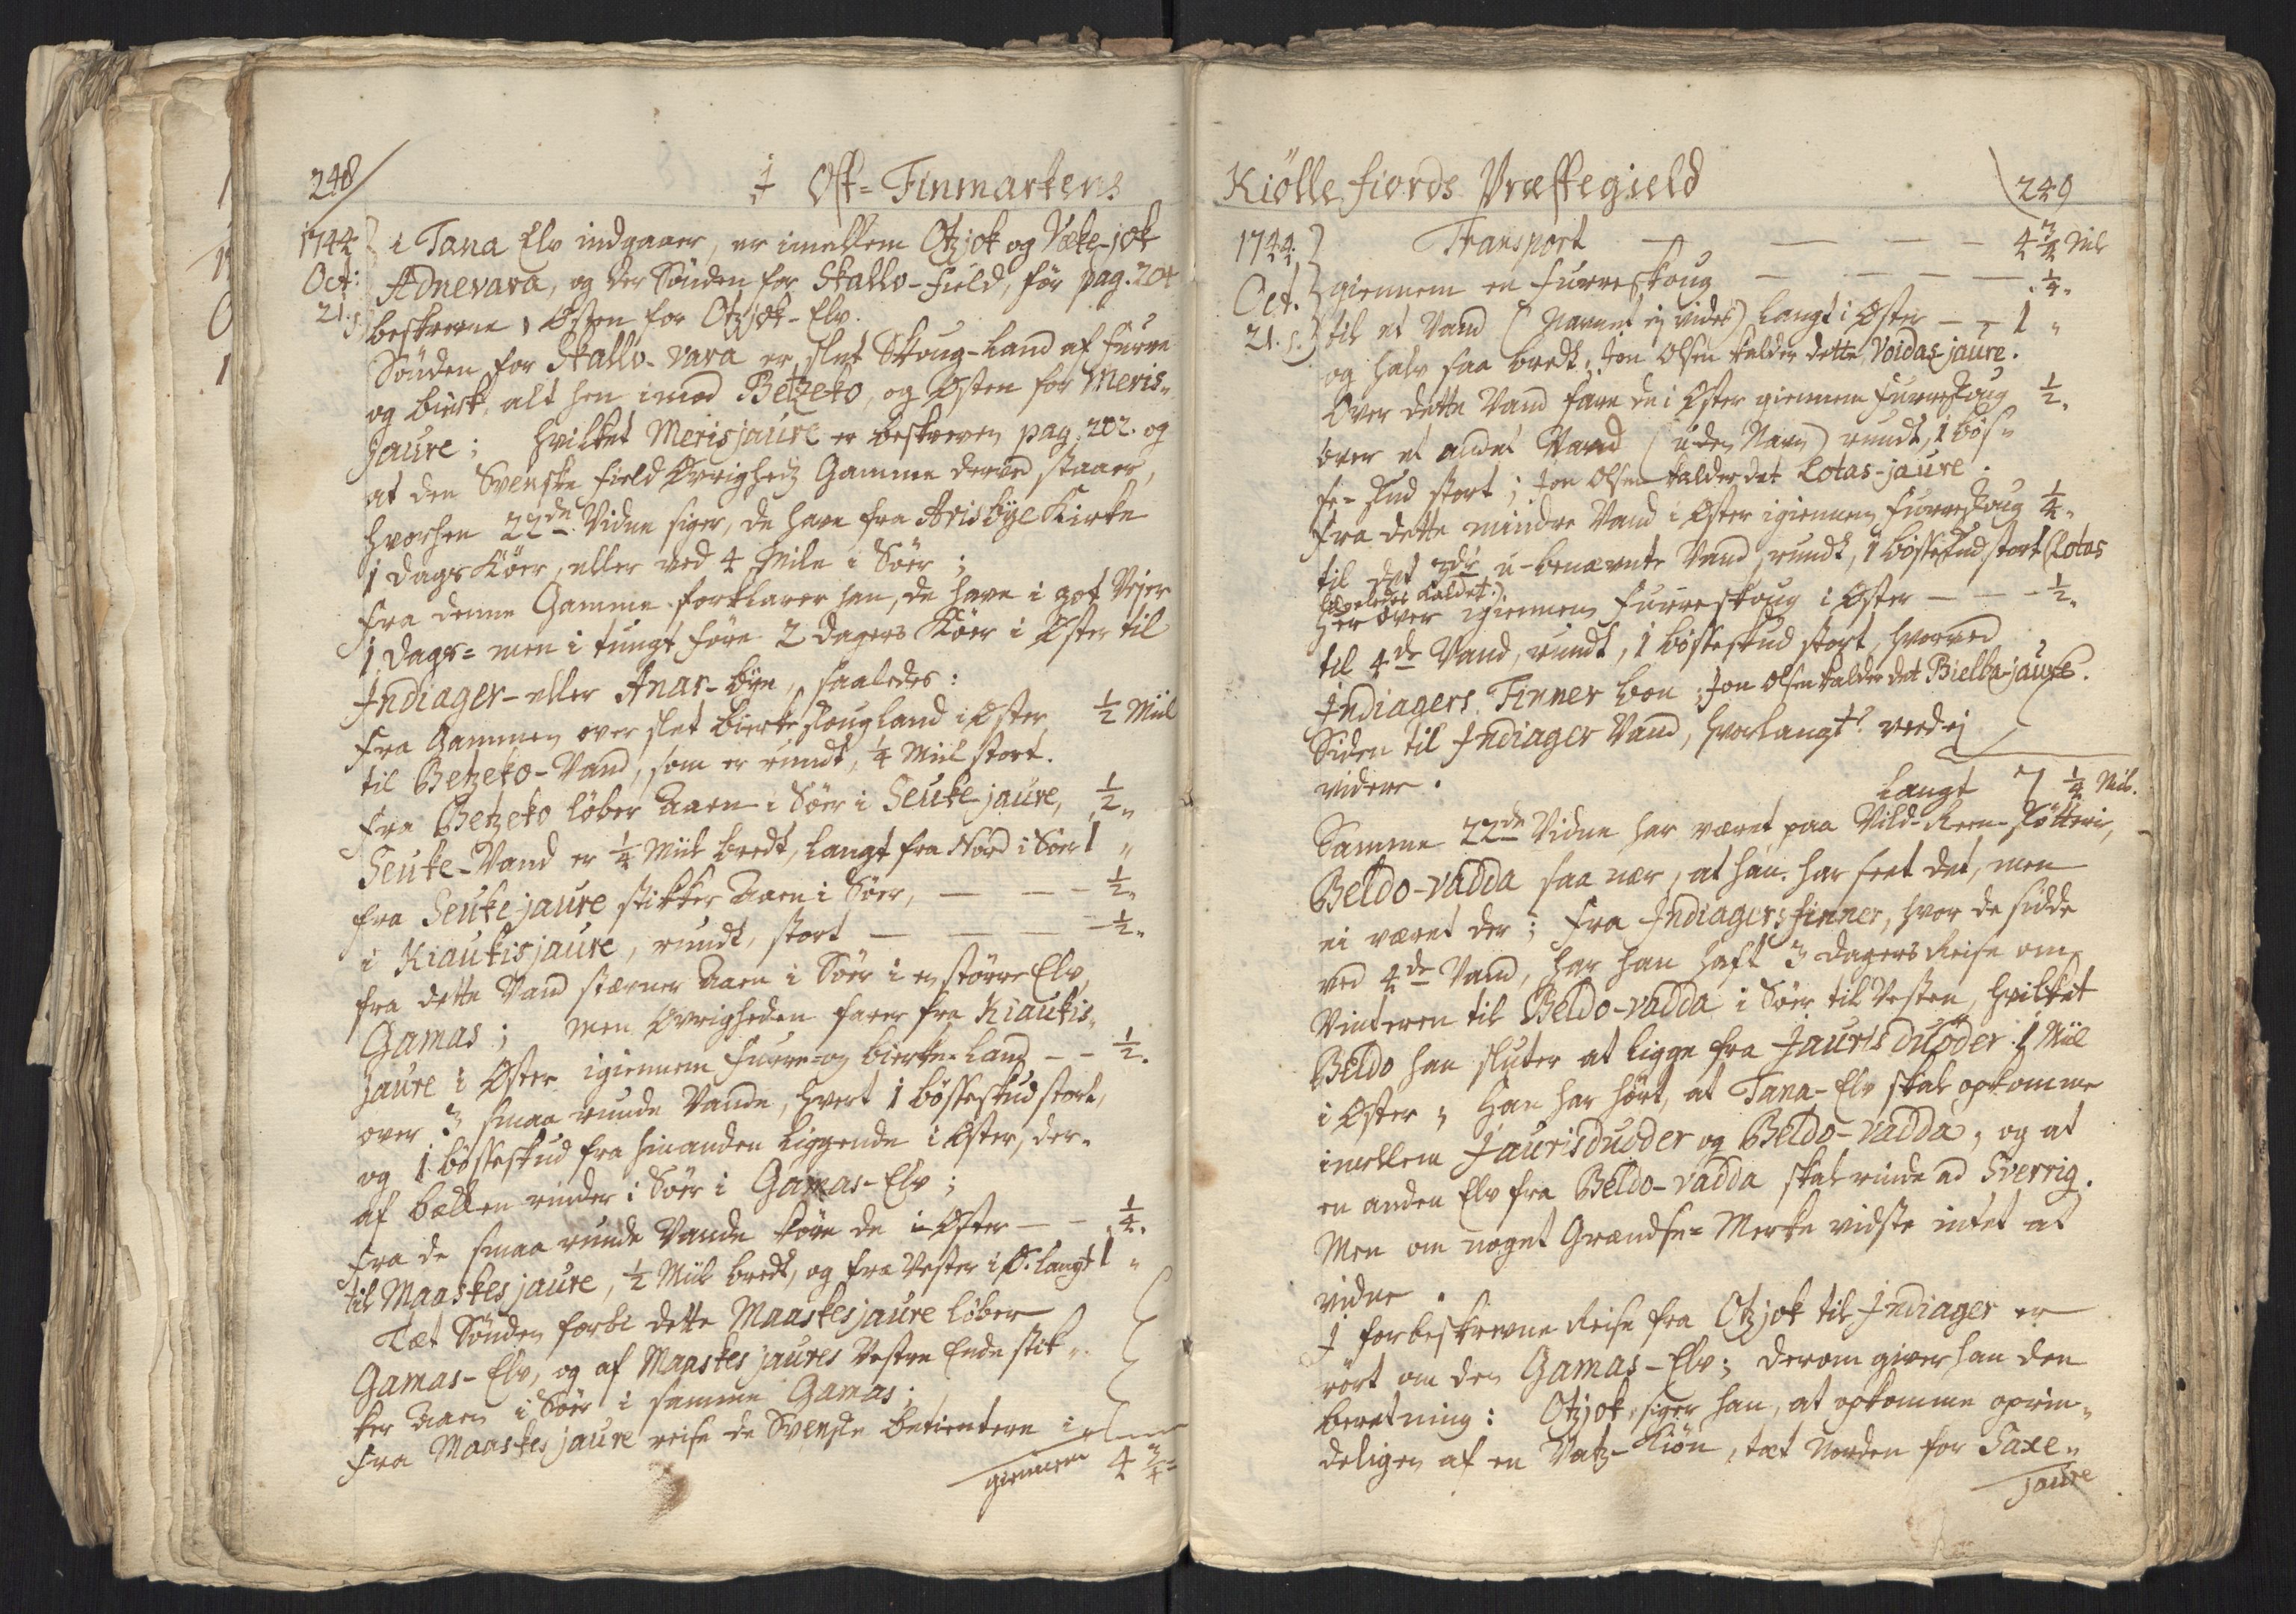 248
i Ost=Finmarkens
1744 i Tana Elv indgaaer, er imellem Otzjok og Væke-jok
Oct: Adnevara, og der Sönden for Skallo-Field, för pag. 204
21. beskrevne, Østen for Otzjok-Elv.
Sönden for Skallo-vara er slet Skoug-Land af furre
og birk, alt hen imod Betzeko, og Østen for Meris-
jaure; hvilket Merisjaure er beskreven pag. 202. og
at den Svenske field Øvrigheds Gamme derved staaer,
hvorhen 22de Vidne siger, de have fra Arisbye Kirke
1 dags Köer, eller ved 4 Mile i Söer;
Fra denne Gamme forklarer han, de have i got Vejer
1 dags= men i tungt före 2 dagers Köer i Øster til
Indiager- eller Anar-bye, saaledes:
Fra Gammen over slet birke skougland i Øster ½ Miil
til Betzeko-Vand, som er rundt, ¼ Miil stort.
Fra Betzeko löber Aaen i Söer i Seuke-jaure, ½ "
Seuke-Vand er ¼ Miil bredt, langt fra Nord i Söer 1 "
fra Seukejaure stikker Aaen i Söer, — — — ½ "
i Kiaukisjaure, rundt, stort — — — ½ "
fra dette Vand stævner Aaen i Söer i en större Elv,
Gamas; men Øvrigheden farer fra Kiaukis-
jaure i Øster igiennem furre= og birke-Land — — ½ "
over 3 smaa runde Vande, hvert 1 bösseskud stort,
og 1 bösseskud fra hinanden liggende i Øster, der-
af bekken rinder i Söer i Gamas-Elv;
Fra de smaa runde Vande köre de i Øster — — ¼ "
til Maaskesjaure, ½ Miil bredt, og fra Vester i Ø. langt 1 "
Tæt Sönden forbi dette Maaskesjaure löber
Gamas-Elv, og af Maaskesjaures Vestre Ende stik-
ker Aaen i Söer i samme Gamas;
Fra Maaskesjaure reise de Svenske betientere i
giennem 4 ¾ =
Kiöllefiords Præstegield 249
1744. Transport — — — — 4 ¾ Mil
Oct. giennem en furreskoug — — — — ¼ "
21. til et Vand (Navnet ej vides) langt i Øster — — 1 "
og halv saa bredt; Jon Olsen kalder dette Voidas-jaure.
Over dette Vand fare de i Øster giennem furreskoug ½ "
over et andet Vand (uden Navn) rundt, 1 bös-
se-skud stort; Jon Olsen kalder det Lotas-jaure.
Fra dette mindre Vand i Øster igiennem furreskoug ¼ "
til det 3die u-benævnte Vand, rundt, 1 bösseskud stort (Lotas
ligeledes kaldet.)
herover igiennem furreskoug i Øster — — — ½ "
til 4de Vand, rundt, 1 bösseskud stort, hvorved
Indiagers Finner boe; Jon Olsen kalder det Bielba-jaure.
Siden til Indiager Vand, hvorlangt? veed ej
videre.
Langt 7 ¼ Mil.
Samme 22de Vidne har været paa Vild-Reen-skötterie,
Beldo-vadda saa nær, at han har seet det, men
ei været der; Fra Indiagers finner, hvor de sidde
ved 4de Vand, har han haft 3 dagers Reise om
Vinteren til Beldo-vadda i Söer til Vesten, hvilket
Beldo han sluter at ligge fra Jauris duöder 1 Miil
i Øster; Han har hört, at Tana-Elv skal opkomme
imellem Jaurisduöder og Beldo-vadda, og at
en anden Elv fra Beldo-vadda skal rinde ad Sverrig.
Men om noget Grændse=Merke vidste intet at
vidne.
I forbeskrevne Reise fra Otzjok til Indiager er
rört om den Gamas-Elv; derom giver han den
beretning: Otzjok, siger han, at opkomme oprin-
deligen af en Vatz-Kiön, tæt Norden for Saxe-
jaure